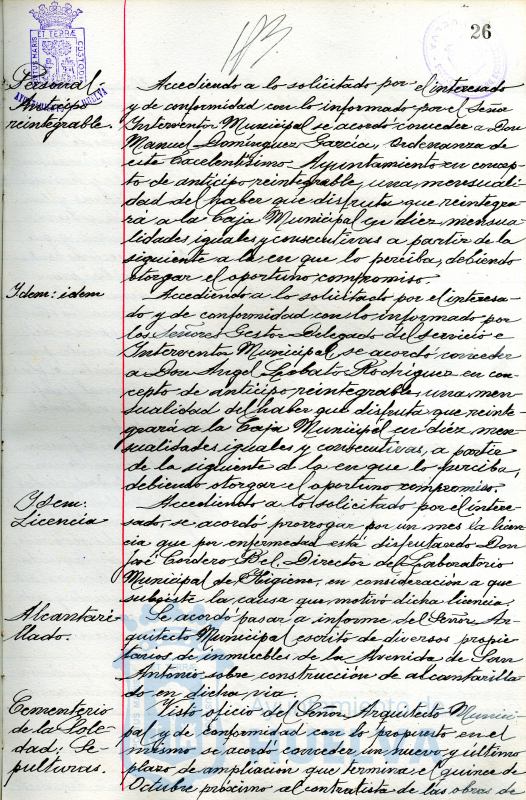 26
Personal -
Anticipo
reintegrable.
Accediendo a lo solicitado por el interesado
y de conformidad con lo informado por el Señor
Interventor Municipal se acordó conceder a Don
Manuel Domínguez García, Ordenanza de
este Excelentísimo Ayuntamiento en concep-
to de anticipo reintegrable, una mensuali-
dad del haber que disfruta que reintegra-
rá a la Caja Municipal en diez mensua-
lidades iguales y consecutivas a partir de la
siguiente a la en que lo perciba, debiendo
otorgar el oportuno compromiso.
Idem: idem
Accediendo a lo solicitado por el interesa-
do y de conformidad con lo informado por
los Señores Gestor Delegado del servicio e
Interventor Municipal, se acordó conceder
a Don Angel Lobato Rodríguez en con-
cepto de anticipo reintegrable, una men-
sualidad del haber que disfruta que reinte-
grará a la Caja Municipal en diez men-
sualidades iguales y consecutivas, a partir
de la siguiente de la en que lo perciba,
debiendo otorgar el oportuno compromiso
Idem:
Licencia
Accediendo a lo solicitado por el intere-
sado, se acordó prorrogar por un mes la licen-
cia que por enfermedad está disfrutando Don
José Cordero Bel, Director del Laboratorio
Municipal de Higiene, en consideración a que
subsiste la causa que motivó dicha licencia.
Alcantari-
llado.
Se acordó pasar a informe del Señor Ar-
quitecto Municipal escrito de diversos propie-
tarios de inmuebles de la Avenida de San
Antonio sobre construcción de alcantarilla-
do en dicha vía.
Cementerio
de la Sole-
dad: Se-
pulturas.
Visto oficio del Señor Arquitecto Munici-
pal y de conformidad con lo propuesto en el
mismo se acordó conceder un nuevo y último
plazo de ampliación que termina el quince de
Octubre próximo al contratista de las obras de
Ayuntamiento de
HUELVA